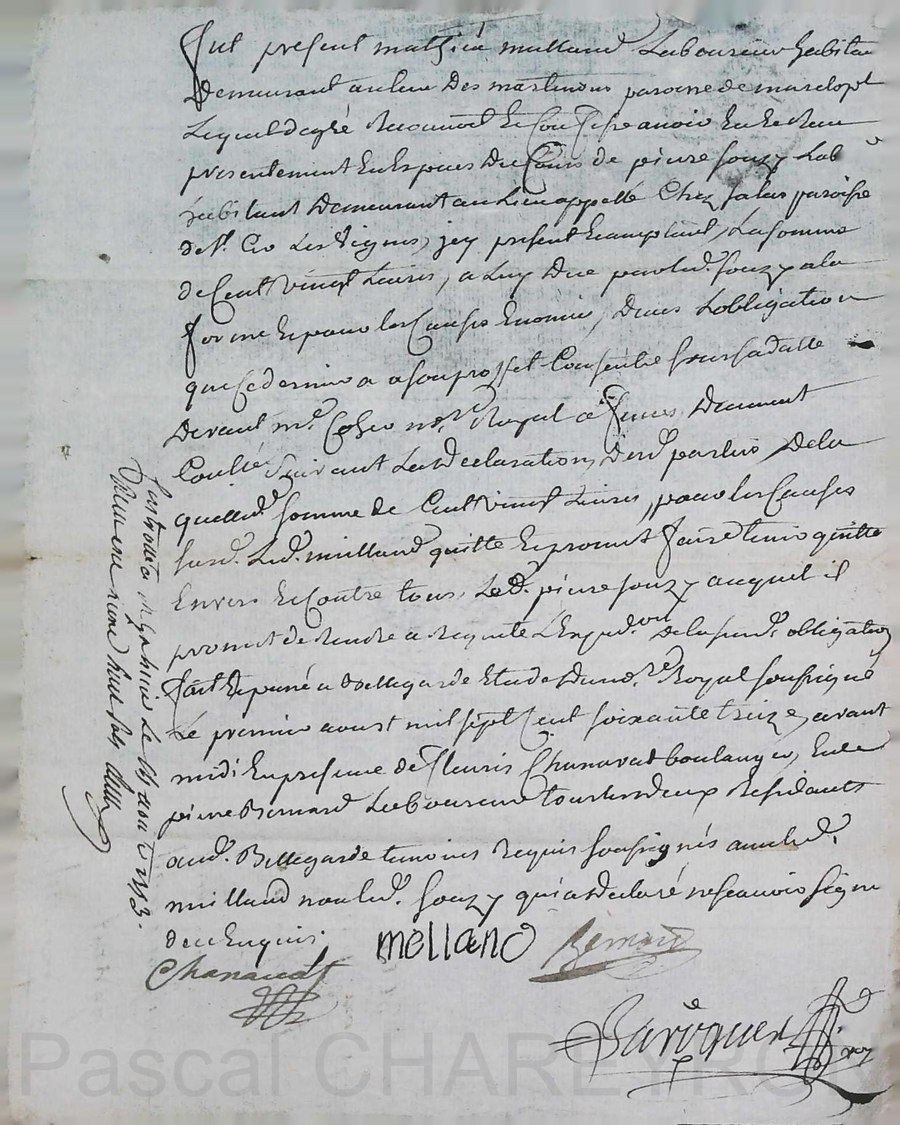 fut présent mathieu milland Laboureur habitan
Demeurant au lieu Des martinons paroisse de marclopt
Lequel de gré Reconnoit Et Confesse avoir Eu Et Receu
presentement En Especes Du Cours de pierre souzy Lab.r
habitant Demeurant au Lieu appellé Chez jalas paroisse
de St. Cir Les Vignes, icy present Et acceptant, La somme
de Cent vingt Livres, a Luy Due par led. souzy a la
forme Et pour les Causes Enoncées, Dans L'obligation
que Ce dernier a a son proffit Consentie sous sa datte
Devant me. nre. Royal a
Suivant La Declaration, Desd. parties De la
quelled. somme de Cent vingt Livres, pour les Causes
susd. Led. milland quitte Et promet faire tenir quitte
Envers Et Contre tous, Led. pierre souzy auquel il
promet de Rendre a Requete L'Expedon. De la susd. obligation
fait Et passé a Bellegarde Etude Du nore. Royal soussigné
Le premier aoust mil sept Cent soixante treize, avant
midi En presence de fleuris Chanavat boulanger, Et de
pierre Bernard Laboureur tous les deux Residants
aud. Bellegarde temoins Requis soussignés avec led.
milland non led. souzy qui a declaré ne scavoir signer
de ce Enquis.
Chanavat mellano Bernard
Baroquer
Controllé a st galmier Le aout 1773.
Reçu huit sols
Pascal CHAREYRON